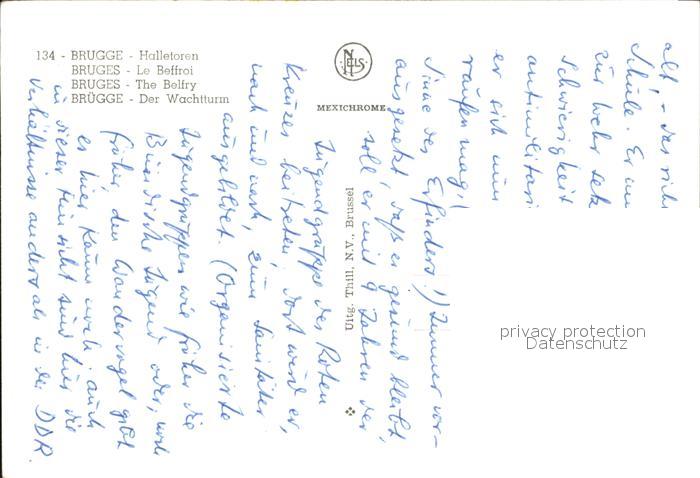 134 - BRUGGE - Halletoren
BRUGES - Le Beffroi
BRUGES - The Belfry
BRÜGGE - Der Wachtturm
NELS
MEXICHROME
Uitg. Thill, N.V., Brussel
privacy protection
Datenschutz
alt, - das sich
Schule. Er
zur Wehr setz
Schwierigkeit
antimilitari
er sich nun
raufen mag!
Sinne des Erfinders!) Immer vor-
ausgesetzt daß er gesund bleibt,
soll er mit 9 Jahren der
Jugendgruppe des Roten
Kreuzes beitreten. Dort wird er,
nach und nach, zum Sanitäter
ausgebildet. (Organisierte
Jugendgruppen wie früher die
Bündische Jugend oder, noch
früher den Wandervogel gibt
es hier kaum noch; auch
in dieser Hinsicht sind hier die
Verhältnisse anders als in der DDR.